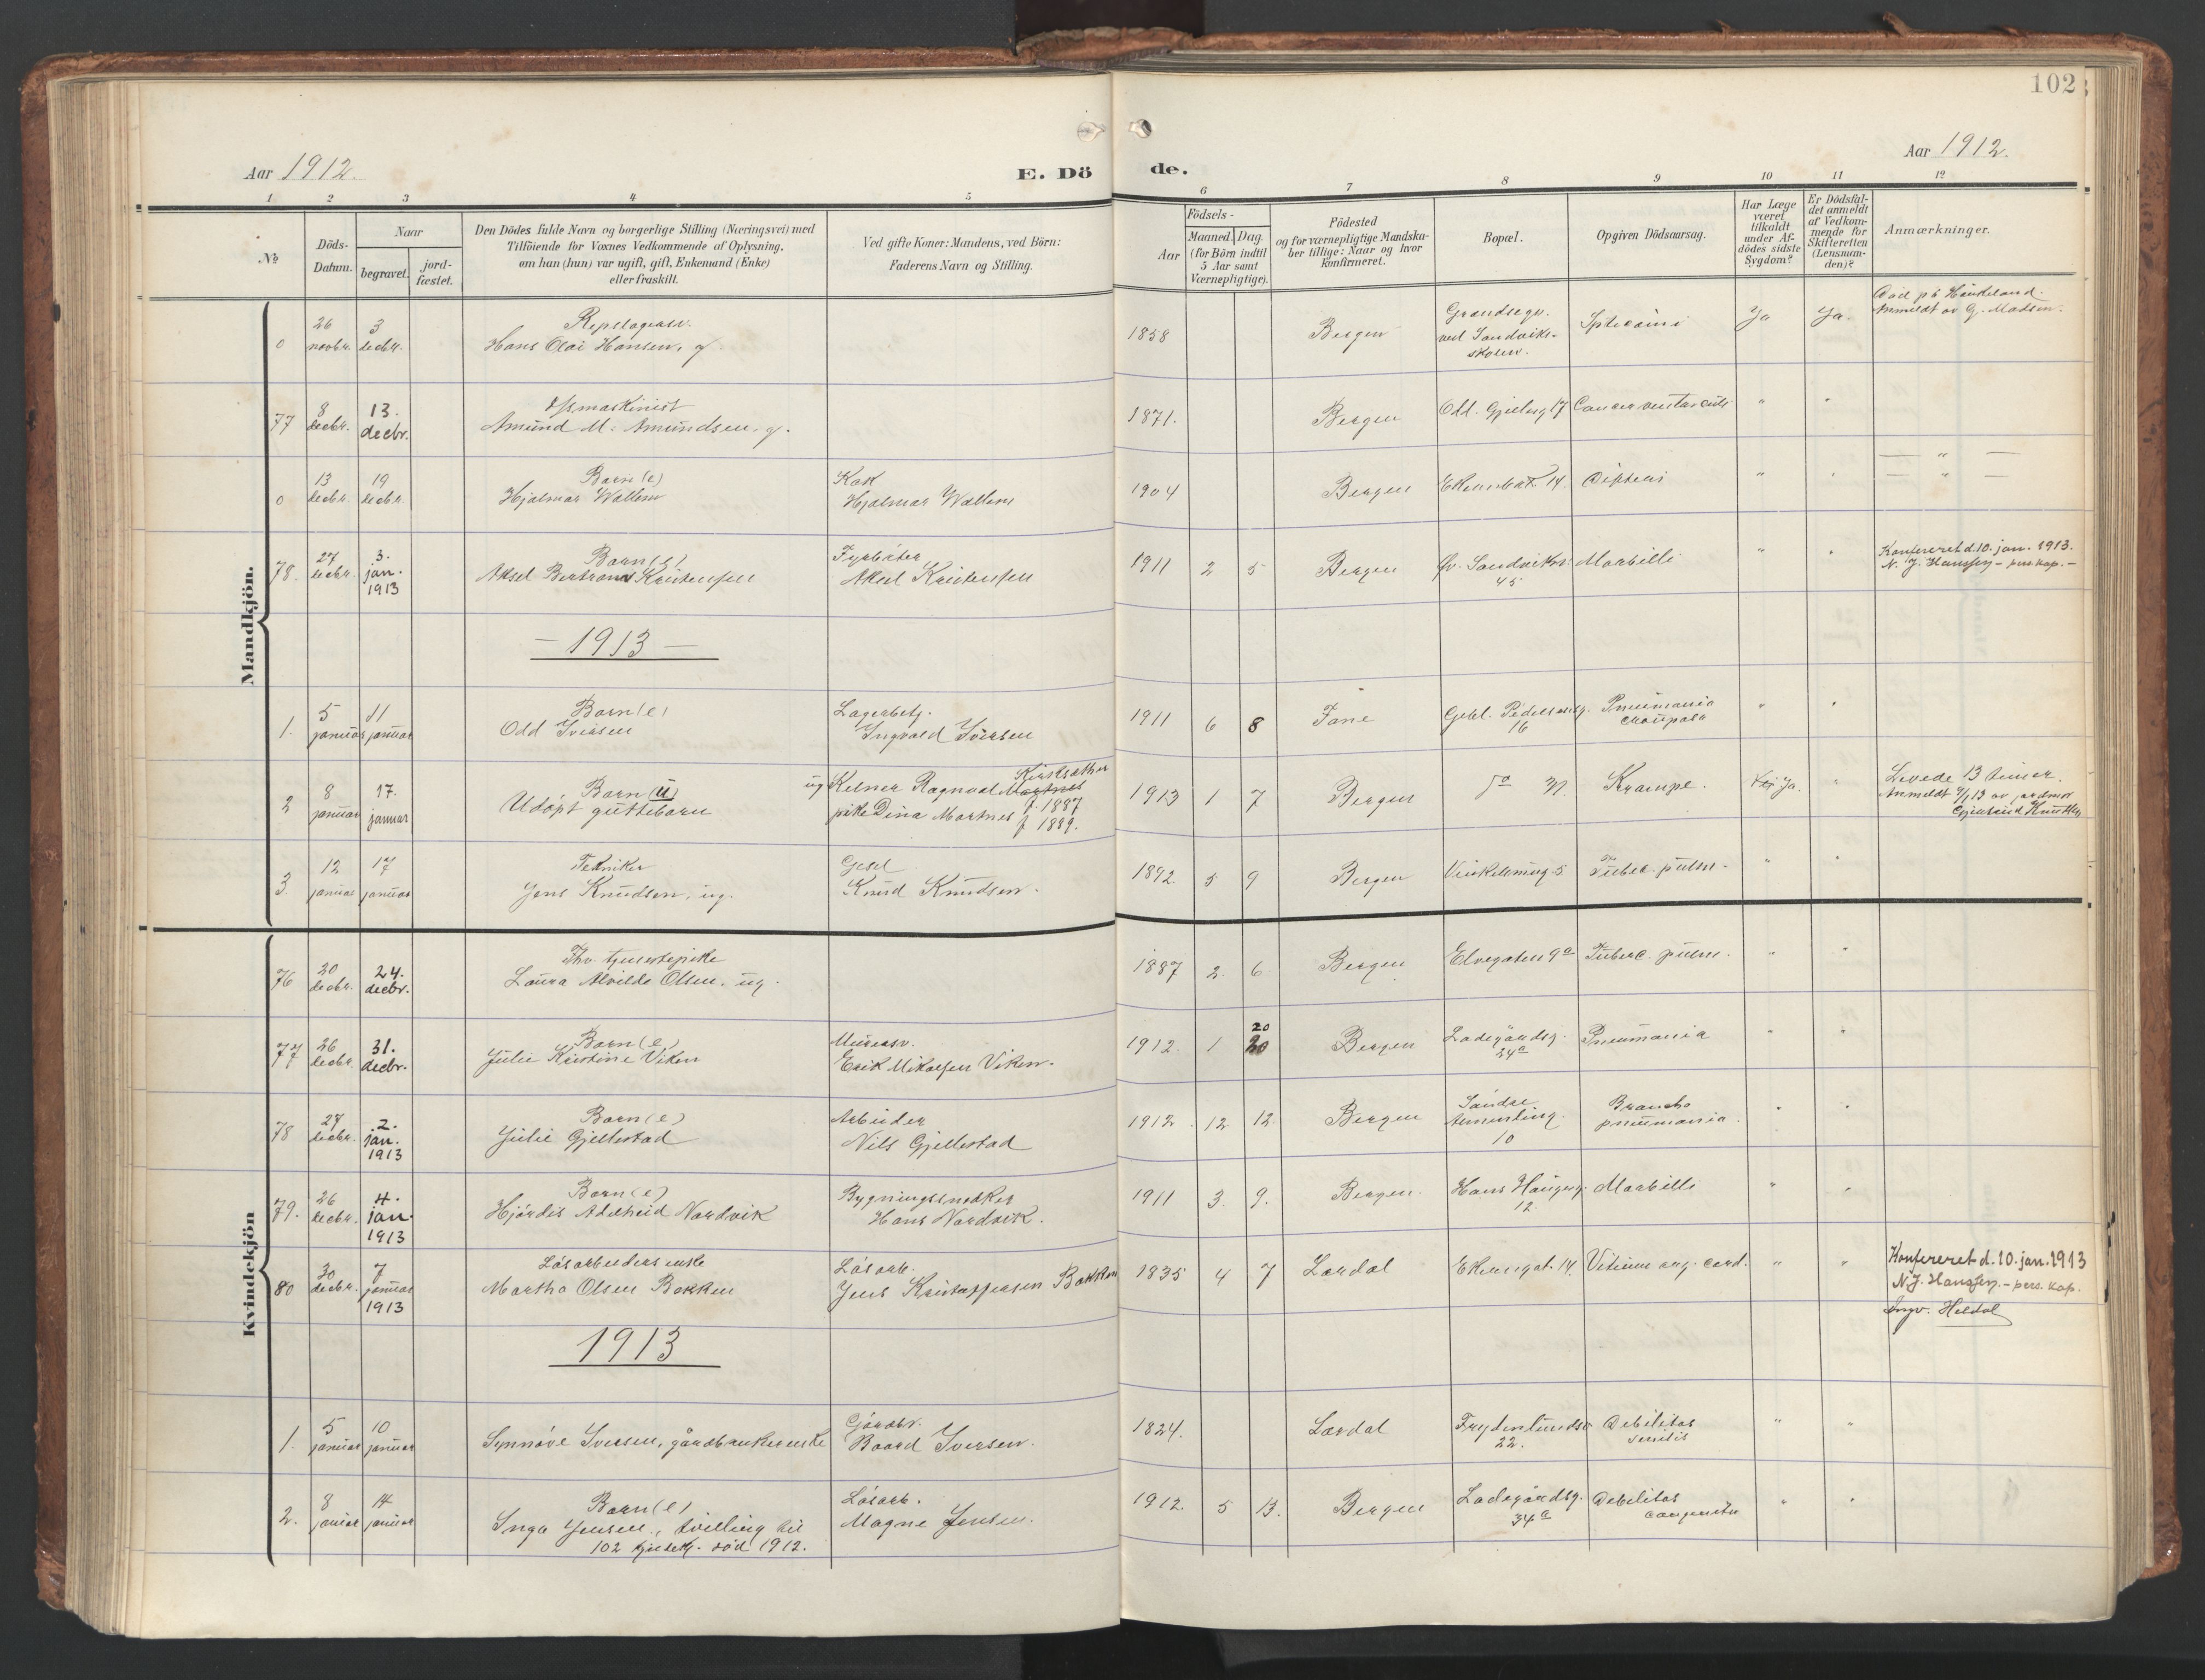 102
Aar 1912.
E. Dö
de.
Aar 1912.
1 2 3 4 5 6 7 8 9 10 11 12
No
Döds-
Datum.
Naar
begravet.
jord-
fæstet.
Den Dödes fulde Navn og borgerlige Stilling (Næringsvei) med
Tilföiende for Voxnes Vedkommende af Oplysning,
om han (hun) var ugift, gift, Enkemand (Enke)
eller fraskilt.
Ved gifte Koner: Mandens, ved Börn:
Faderens Navn og Stilling.
Födsels-
Aar
Maaned. Dag.
(for Börn indtil
5 Aar samt
Værnepligtige).
Födested
og for værnepligtige Mandska-
ber tillige: Naar og hvor
konfirmeret.
Bopæl.
Opgiven Dödsaarsag.
Har Læge
været
tilkaldt
under Af-
dödes sidste
Sygdom?
Er Dödsfal-
det anmeldt
af Vedkom-
mende for
Skifteretten
(Lensman-
den)?
Anmærkninger.
Mandkjön.
0 26 novbr. 3 decbr.
Repslagerarb.
Hans Olai Hansen, g.
1858 Bergen
Grandsegr.
ved Sandviks-
skolen.
Ja Ja.
Död på Haukeland.
Anmeldt av G. Madsen.
77 8 decbr. 13. decbr.
Amund M. Amundsen, g.
1871. Bergen
17 Cancer ventriculi " "
0 13 decbr. 19 decbr.
Barn (e)
Hjalmar Wallem
Kok
Hjalmar Wallem
1904 Bergen 14. Difteri " "
— " —
— " —
78. 27 decbr. 3. jan. 1913
Aksel Kristensen
Fyrböter
Aksel Kristensen
1911 2 5 Bergen Öv. Sandviksv. 45 Morbilli " "
Konfereret d. 10. jan. 1913.
N. J. Hanssen - pers. kap. -
— 1913 —
1. 5 januar 11 januar
Barn (e)
Odd Iversen
Lagerbetj.
Ingvald Iversen
1911 6 8 Fane
16
Pneumonia
" "
2 8 januar 17. januar
Barn (u)
Udöpt guttebarn
ug Kelner Ragnvald
f. 1887
pike Dina Martnes f. 1889.
1913 1 7 Bergen Krampe. Ja. "
Levede 13 timer.
Anmeldt 9/1 13 av jordmor
3. 12 januar 17 januar
Tekniker
Jens Knudsen, ug.
Gesel
Knud Knudsen.
1892. 5 9 Bergen 5 Tuberc. pulm. " "
Kvindekjön
76 20 decbr. 24. decbr.
Fhv. tjenestepike
Laura Alvilde Olsen, ug.
1887 2. 6. Bergen Elvegaten 9a Tuberc. pulm. " "
77 26 decbr. 31. decbr.
Barn (e)
Julie Kirstine Viken
Murarb.
Erik Mikalsen Viken.
1912. 1 20 20 Bergen
Ladegårdsg.
34a
Pneumonia " "
78 27 decbr. 2. jan. 1913
Barn (e)
Julie Gjellestad
Arbeider
Nils Gjellestad
1912. 12 12. Bergen
Söndre
10
Broncho
pneumonia. " "
79. 26 decbr. 4. jan. 1913
Barn (e)
Hjördis Adelheid Nordvik
Bygningssnedker
Hans Nordvik.
1911 3. 9. Bergen.
Hans Haugesg.
12.
Morbilli " "
80 30 decbr. 7 januar 1913
Lösarbeiders enke
Martha Olsen Bakken
Lösarb.
Jens Kristoffersen Bakken
1835 4 7 Lærdal 14. Vitium org. cord. " "
Konfereret d. 10. jan. 1913
N. J. Hanssen, - pers. kap.
Ingv. Heldal
1913
1. 5 januar 10 januar
Synnöve Iversen, gårdbrukerenke
Gårdbr.
Baard Iversen.
1824. Lærdal
Frydenlundsv.
22.
Debilitas
senilis " "
2. 8 januar 14 januar
Barn (e)
Inga Jensen, tvilling til
102 kjöbeg. död 1912.
Lösarb.
Magne Jensen.
1912. 5 13. Bergen
Ladegårdsg.
34a
Debilitas
congenita " "